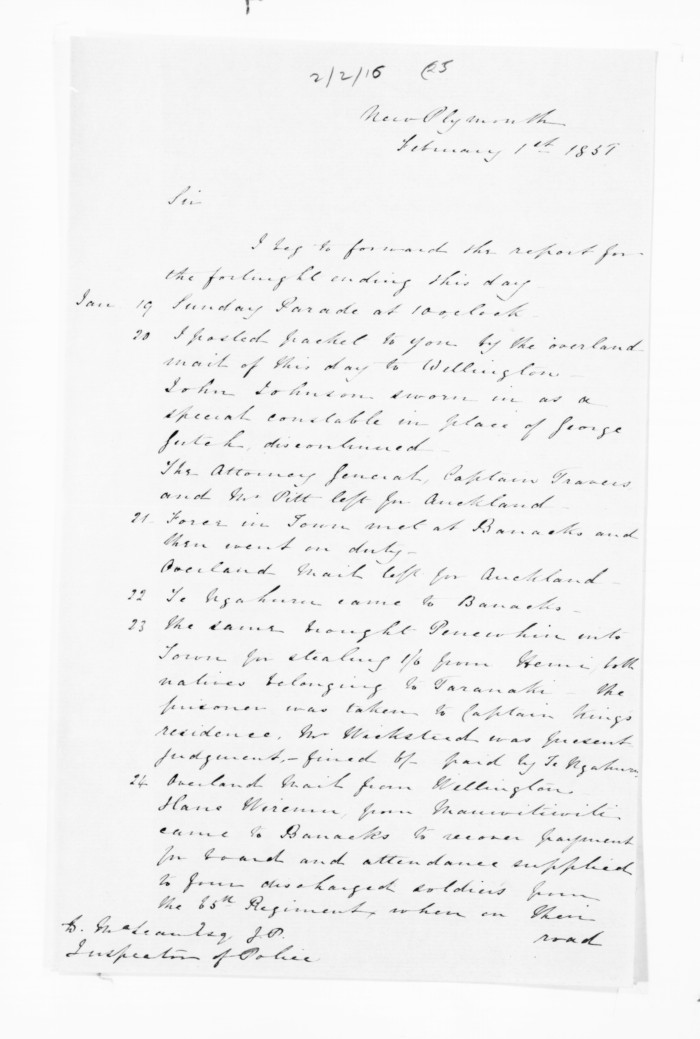 2/2/16
New Plymouth
February 1st 1851
Sir
I beg to forward the report for
the fortnight ending this day
Jan 19 Sunday Parade at 10 oclock
20 I posted packet to you by the overland
mail of this day to Wellington
John Johnson sworn in as a
special constable in place of George
discontinued
The Attorney General, Captain Travers
and Mr Pitt left for Auckland
21 Force in Town met at Banacks and
then went on duty
Overland Mail left for Auckland
22 Te Ngahuru came to Banacks
23 The same brought Penewhin into
Town for stealing 1/6 from Hemi, both
natives belonging to Taranaki - the
prisoner was taken to Captain Kings
residence, Mr Wicksteed was present
judgment, - fined 6/- paid by Te Ngahuru
24 Overland Mail from Wellington
Wiremu, from
came to Banacks to recover payment
for board and attendance supplied
to four discharged soldiers from
the 65th Regiment, when on their
road
D. McLean Esq J.P.
Inspector of Police